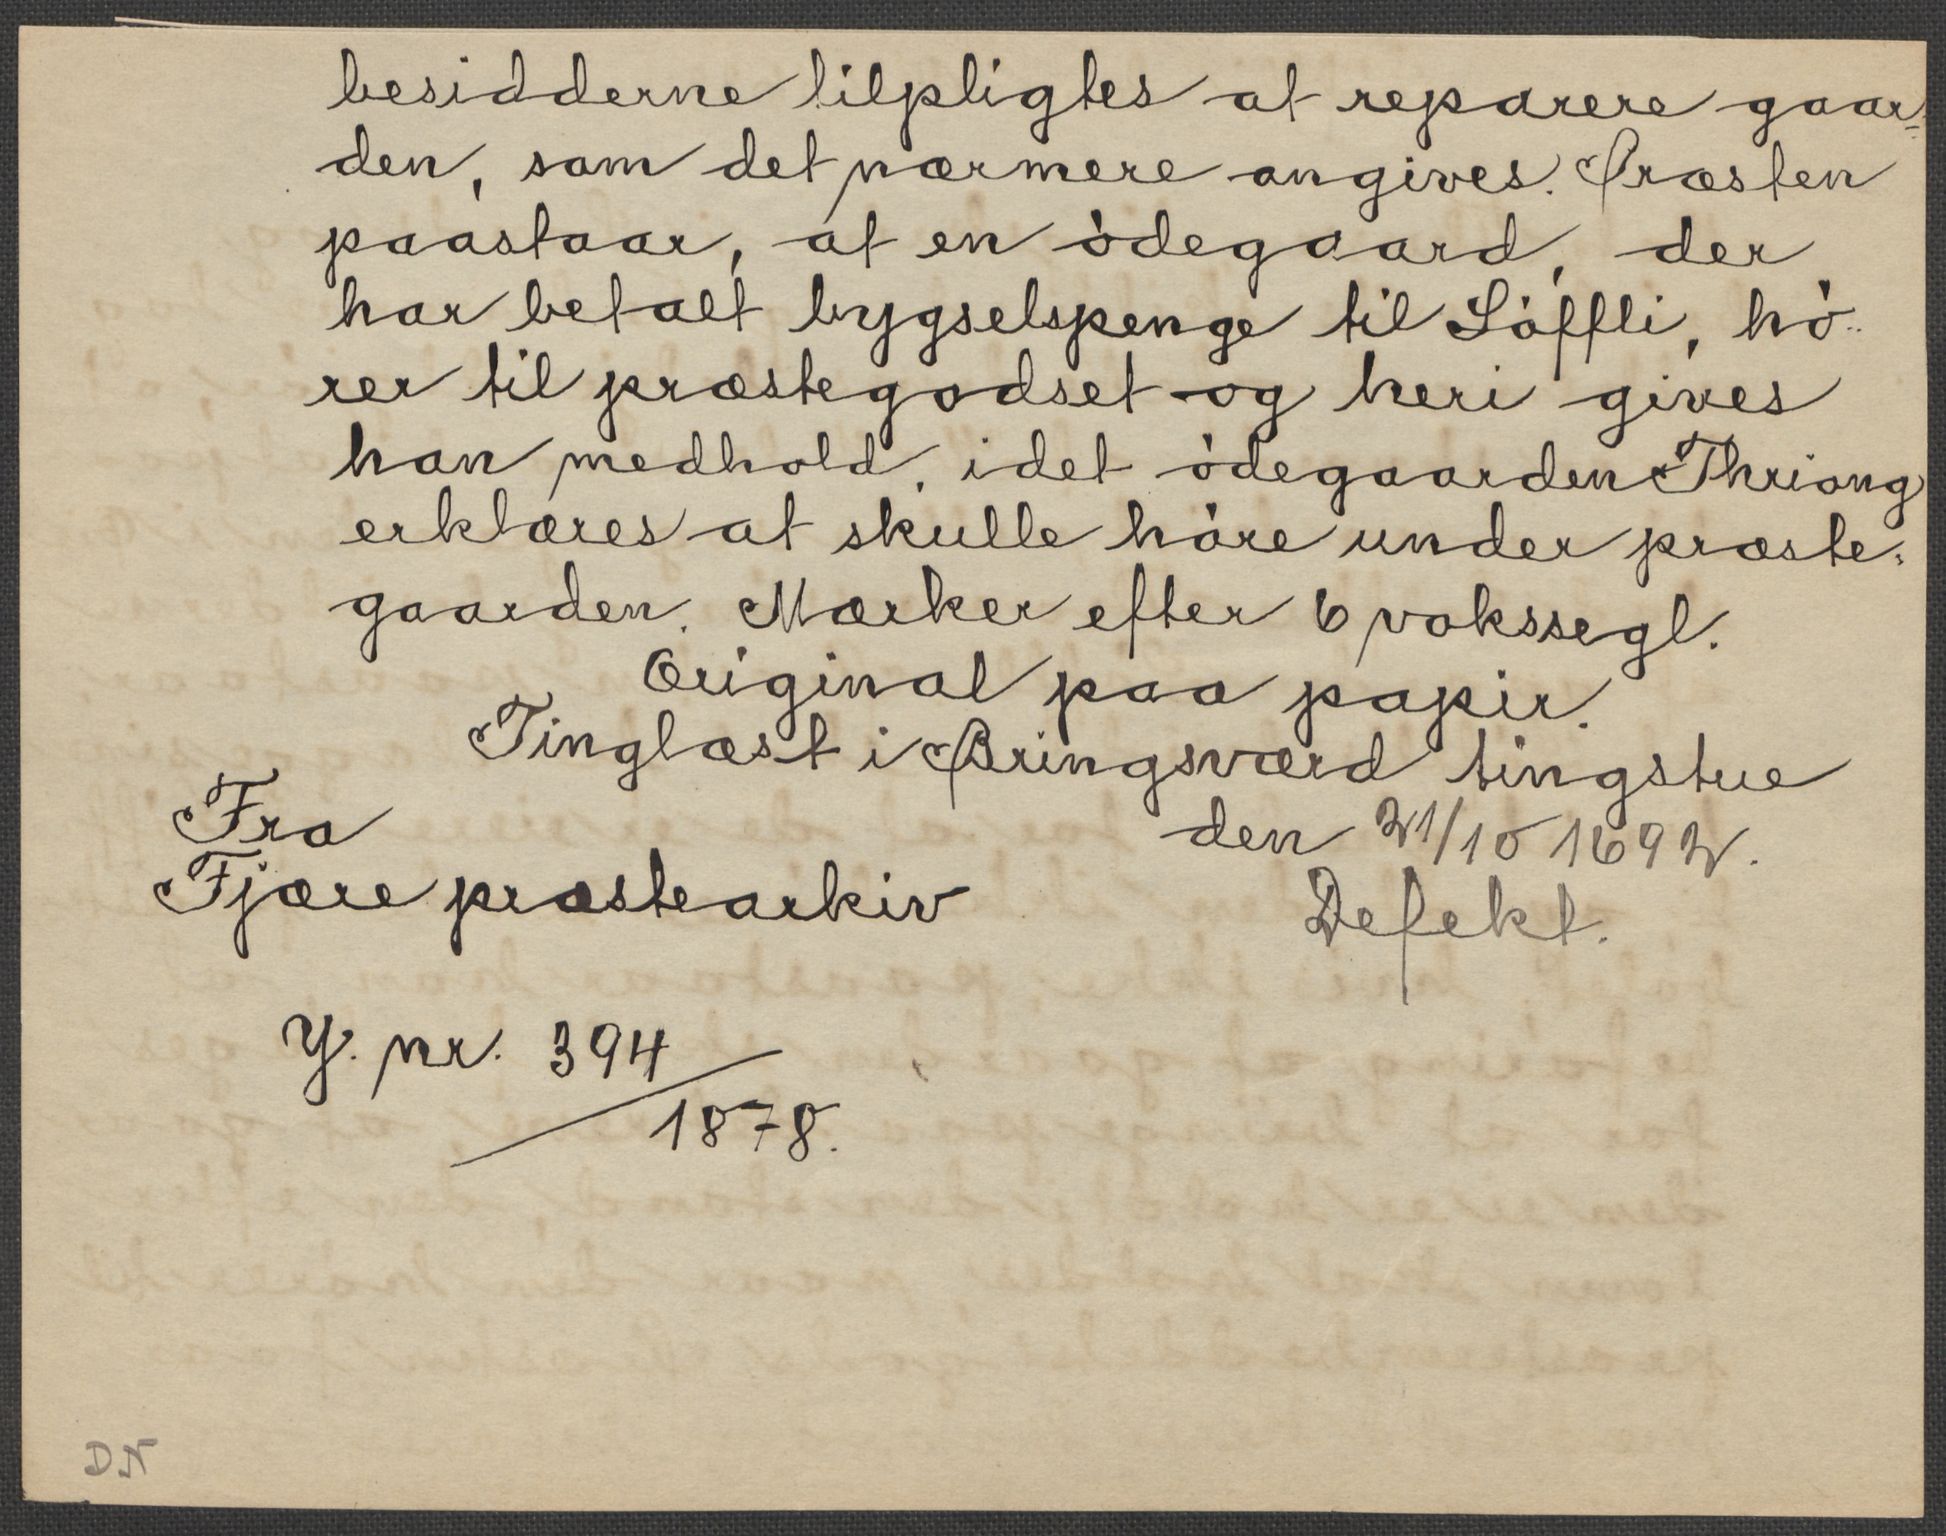 besidderne tilpligtes at reparere gaar=
den, som det nærmere angives. Præsten
paastaar, at en ödegaard, der
har betalt bygselspenge til Löffli, hö-
rer til præstegodset og heri gives
han medhold, idet ödegaarden Thriong
erklæres at skulle höre under præste-
gaarden. Mærker efter 6 vokssegl.
Original paa papir.
Tinglæst i Bringsværd tingstue
den 21/10 1692.
Defekt.
Fra
Fjære præstearkiv
Y. nr. 394
1878.
DN